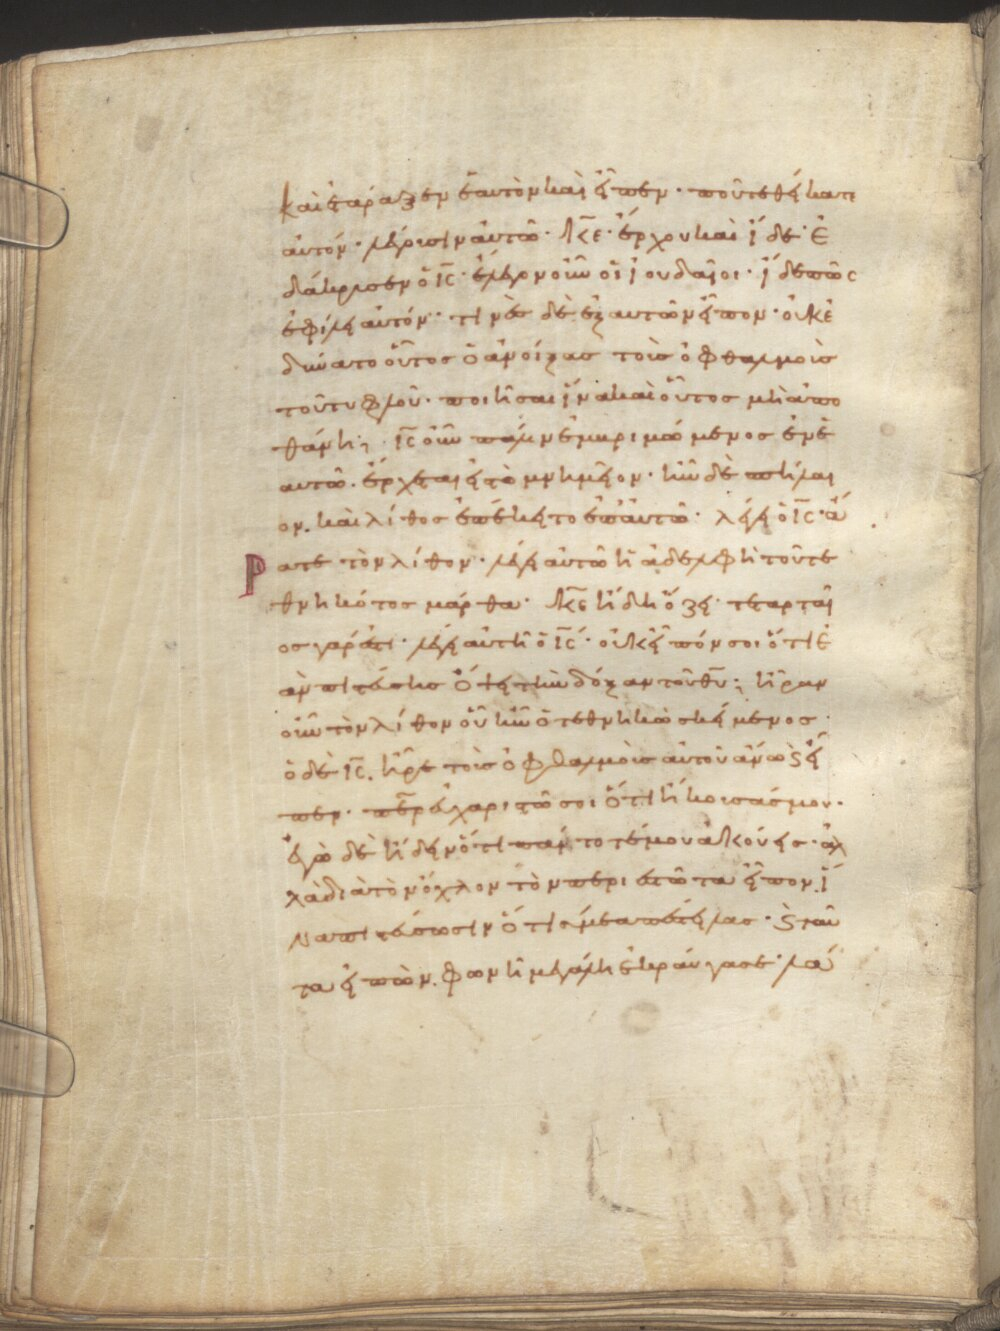 καὶ ἐτάραξεν ἑαυτὸν καὶ εἶπεν· ποῦ τεθείκατε
αὐτόν· λέγουσιν αὐτῶ· κ̅ε̅· ἔρχου καὶ ἴδε· ἐ
δάκρυσεν ὁ ι̅ς̅· ἔλεγον οὖν οἱ ἰουδαῖοι· ἴδε πῶς
ἐφίλει αὐτόν· τινὲς δὲ ἐξ αὐτῶν εἶπον· οὐκ ἐ
δύνατο οὗτος ὁ ἀνοίξας τοὺς ὀφθαλμοὺς
τοῦ τυφλοῦ· ποιῆσαι ἵνα καὶ οὗτος μὴ ἀπο
θάνη; ι̅ς̅ οὖν πάλιν ἐμβριμώμενος ἐν ἑ
αυτῶ· ἔρχεται εἰς τὸ μνημεῖον· ἦν δὲ σπήλαι
ον· καὶ λίθος ἐπέκειτο ἐπ' αὐτῶ· λέγει ὁ ι̅ς̅· ἄ
ρατε τὸν λίθον· λέγει αὐτῶ ἡ ἀδελφὴ τοῦ τε
θνηκότος μάρθα· κ̅ε̅ ἤδη ὄζει· τεταρταῖ
ος γάρ ἐστι· λέγει αὐτῆ ὁ ι̅ς̅· οὐκ εἶπόν σοι ὅτι ἐ
ὰν πιστεύσης ὄψει τὴν δόξαν τοῦ θ̅υ̅; ἦραν
οὖν τὸν λίθον οὗ ἦν ὁ τεθνηκὼς κείμενος·
ὁ δὲ ι̅ς̅· ἦρε τοὺς ὀφθαλμοὺς αὐτοῦ ἄνω ϗ εἶ
πεν· π̅ε̅ρ εὐχαριστῶ σοι ὅτι ἤκουσάς μου·
ἐγὼ δὲ ἤδειν ὅτι πάντοτέ μου ἀκούεις· ἀλ
λὰ διὰ τὸν ὄχλον τὸν περιεστῶτα εἶπον· ἵ
να πιστεύσωσιν ὅτι σύ με ἀπέστειλας· ϗ ταῦ
τα εἰπὼν· φωνῆ μεγάλη ἐκραύγασε· λά